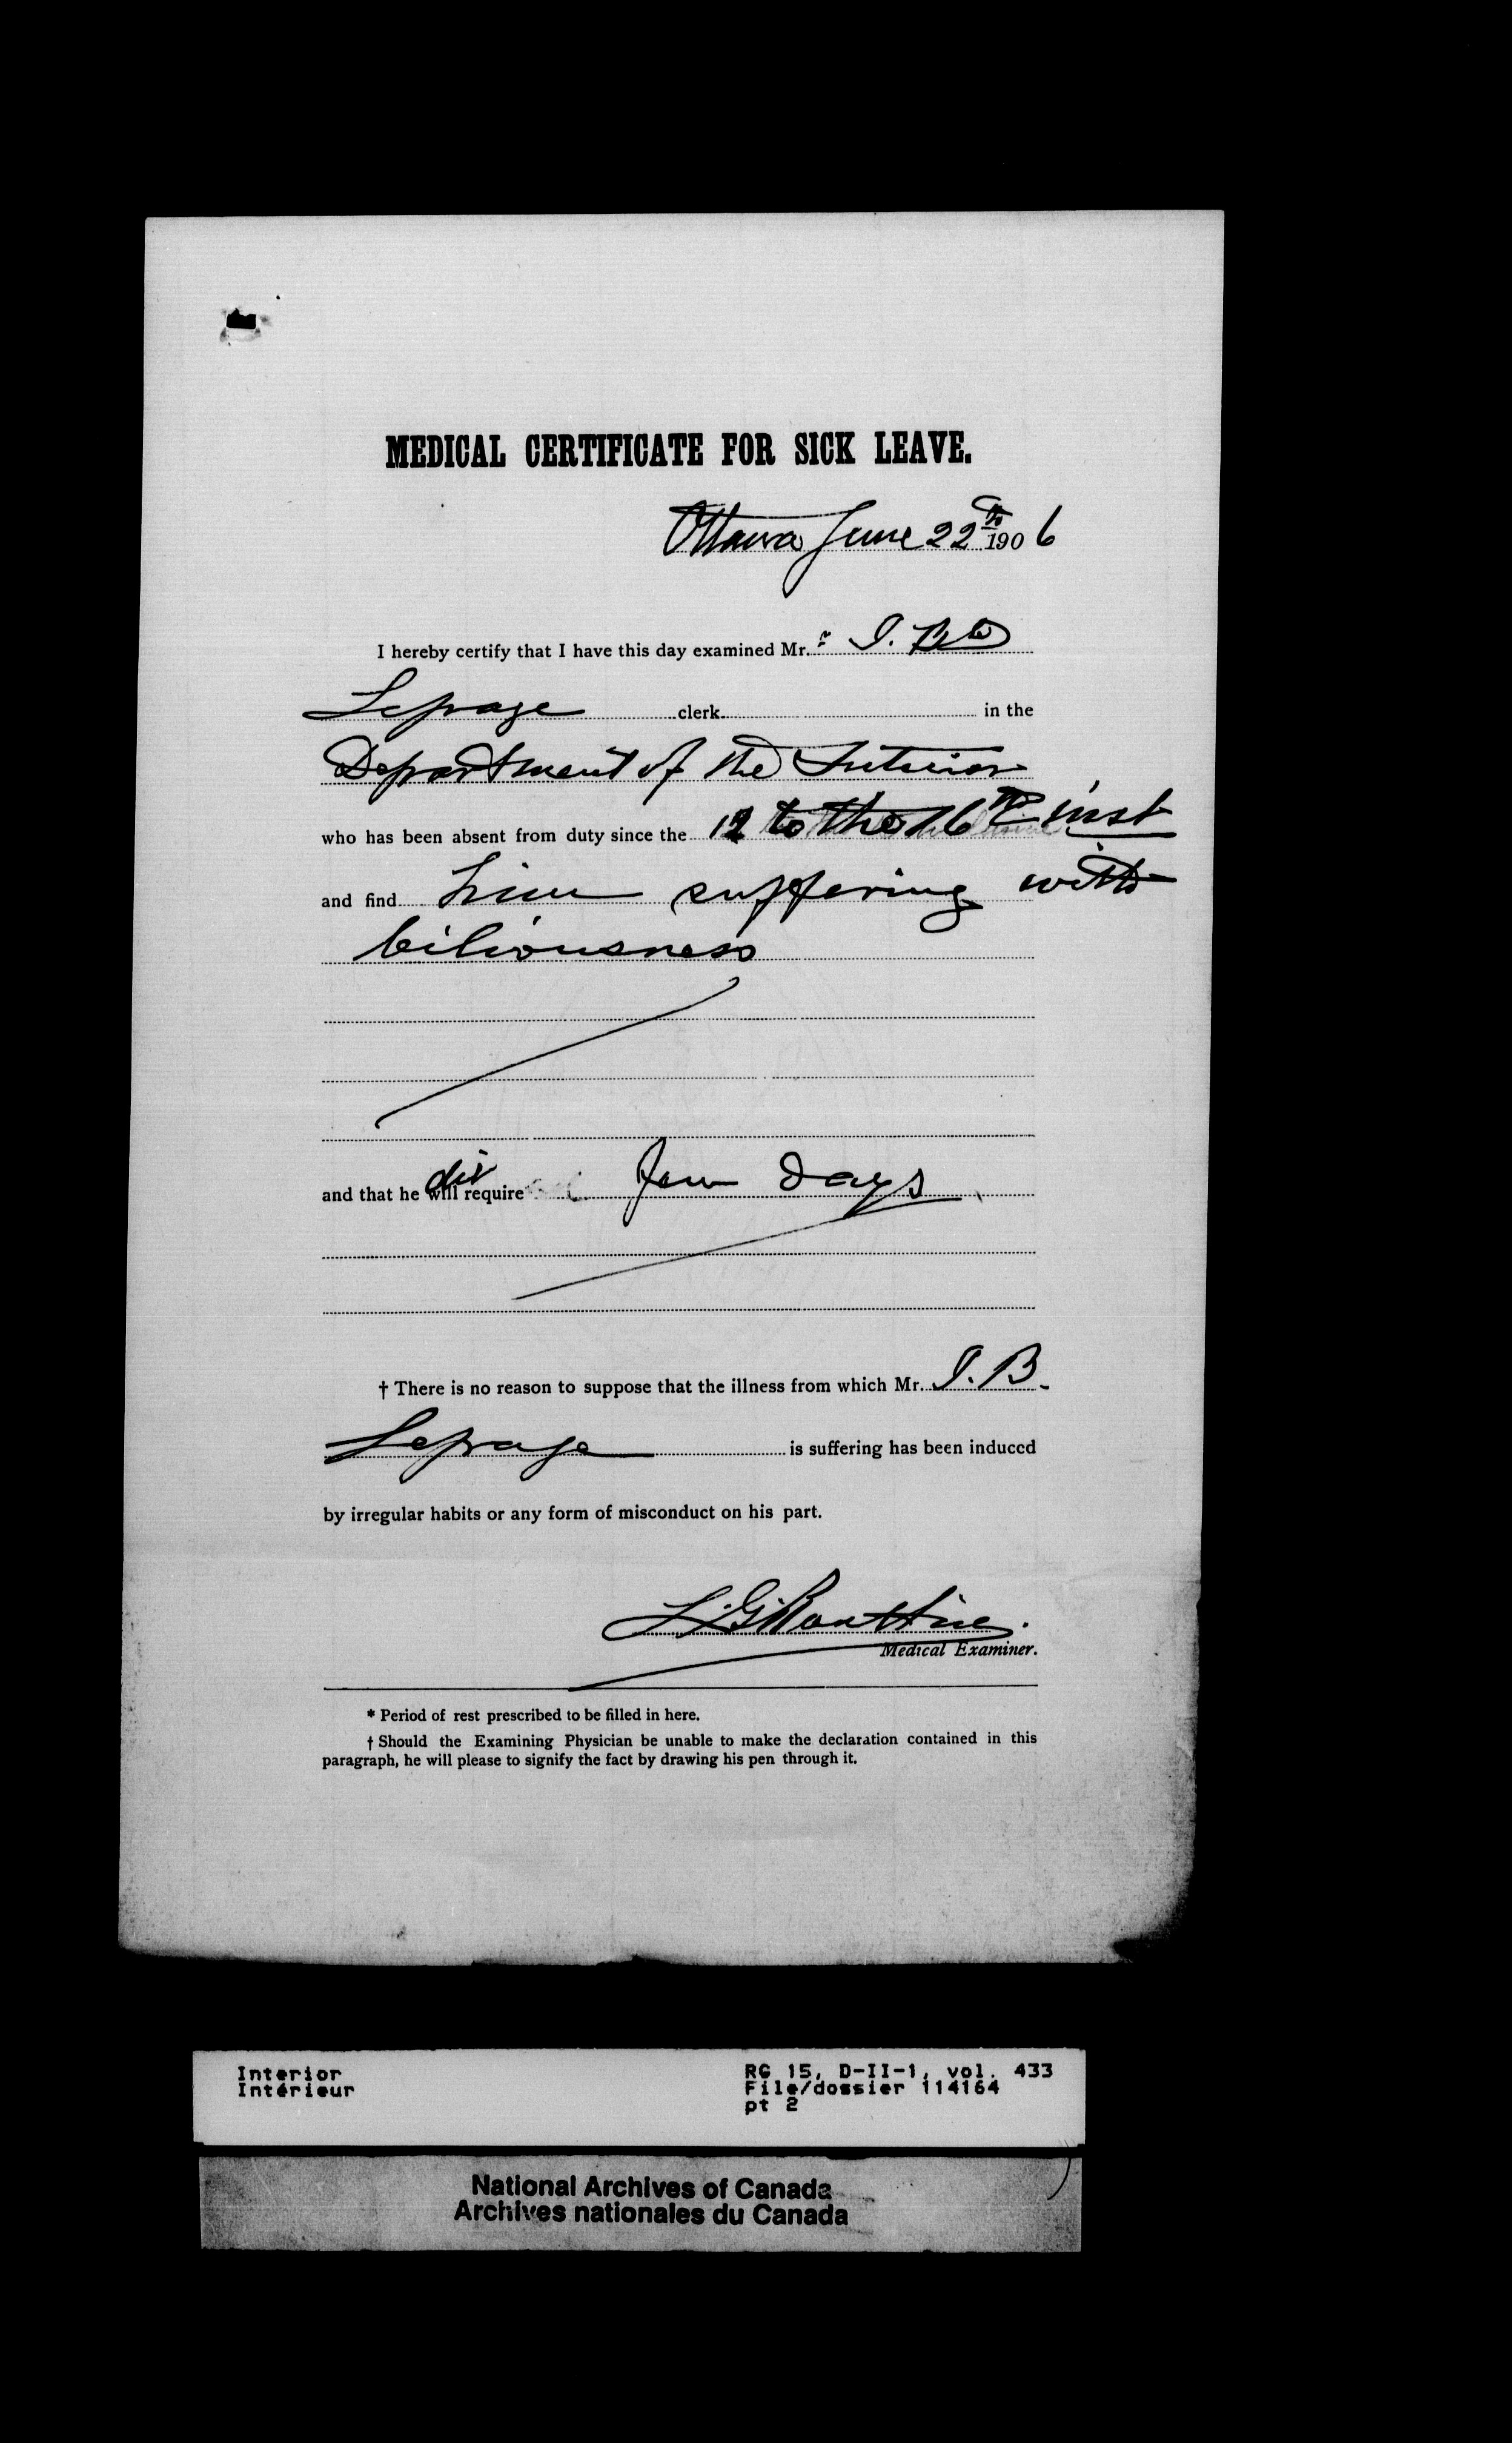 MEDICAL CERTIFICATE FOR SICK LEAVE.
Ottawa June 22th 1906
I hereby certify that I have this day examined Mr. J. B.
Leprage clerk in the
Department of the Interior
who has been absent from duty since the 12 to the 16th inst
and find him suffering with
biliousness
and that he will did require few days
† There is no reason to suppose that the illness from which Mr. J. B.
Leprage is suffering has been induced
by irregular habits or any form of misconduct on his part.
L. G.
Medical Examiner.
* Period of rest prescribed to be filled in here.
† Should the Examining Physician be unable to make the declaration contained in this
paragraph, he will please to signify the fact by drawing his pen through it.
Interior
Intérieur
RG 15, D-II-1, vol. 433
File/dossier 114164
pt 2
National Archives of Canada
Archives nationales du Canada